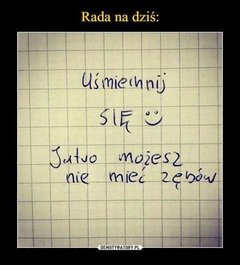 Rada na dziś:
Uśmiechnij
SIĘ
Jutro możesz
nie mieć zębów
DEMOTYWATORY.PL